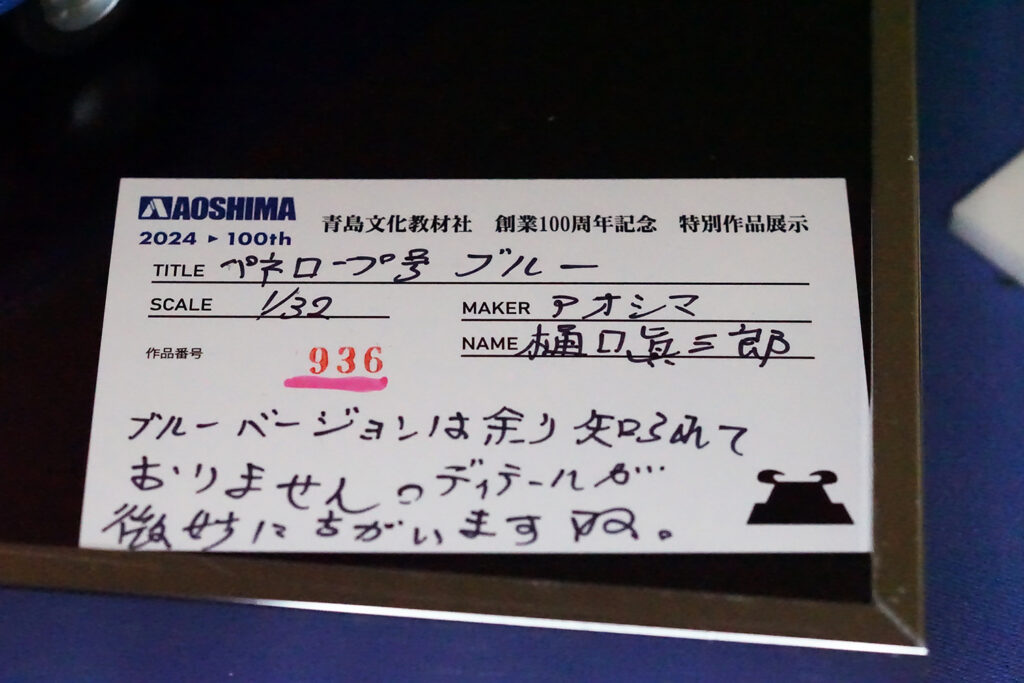 AOSHIMA
2024 ▸ 100th
青島文化教材社 創業100周年記念 特別作品展示
TITLE ペネロープ号 ブルー
SCALE 1/32
MAKER アオシマ
作品番号 936
NAME 樋口眞三郎
ブルーバージョンは余り知られて
おりません。ディテールが…
微妙にちがいますヨ。